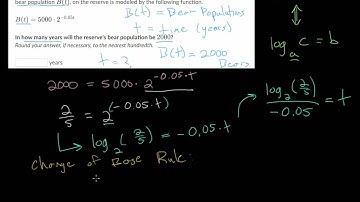 bear population B(t), on the reserve is modeled by the following function.
B(t) = 5000 · 2^-0.05t
In how many years will the reserve's bear population be 2000?
Round your answer, if necessary, to the nearest hundredth.
years
B(t) = Bear Population
t = time (years)
B(t) = 2000
Bears
t = ?
log_a c = b
2000 = 5000 · 2^-0.05·t
2/5 = 2^(-0.05·t)
log_2 (2/5) = -0.05·t
log_2 (2/5) / -0.05 = t
Change of Base Rule: